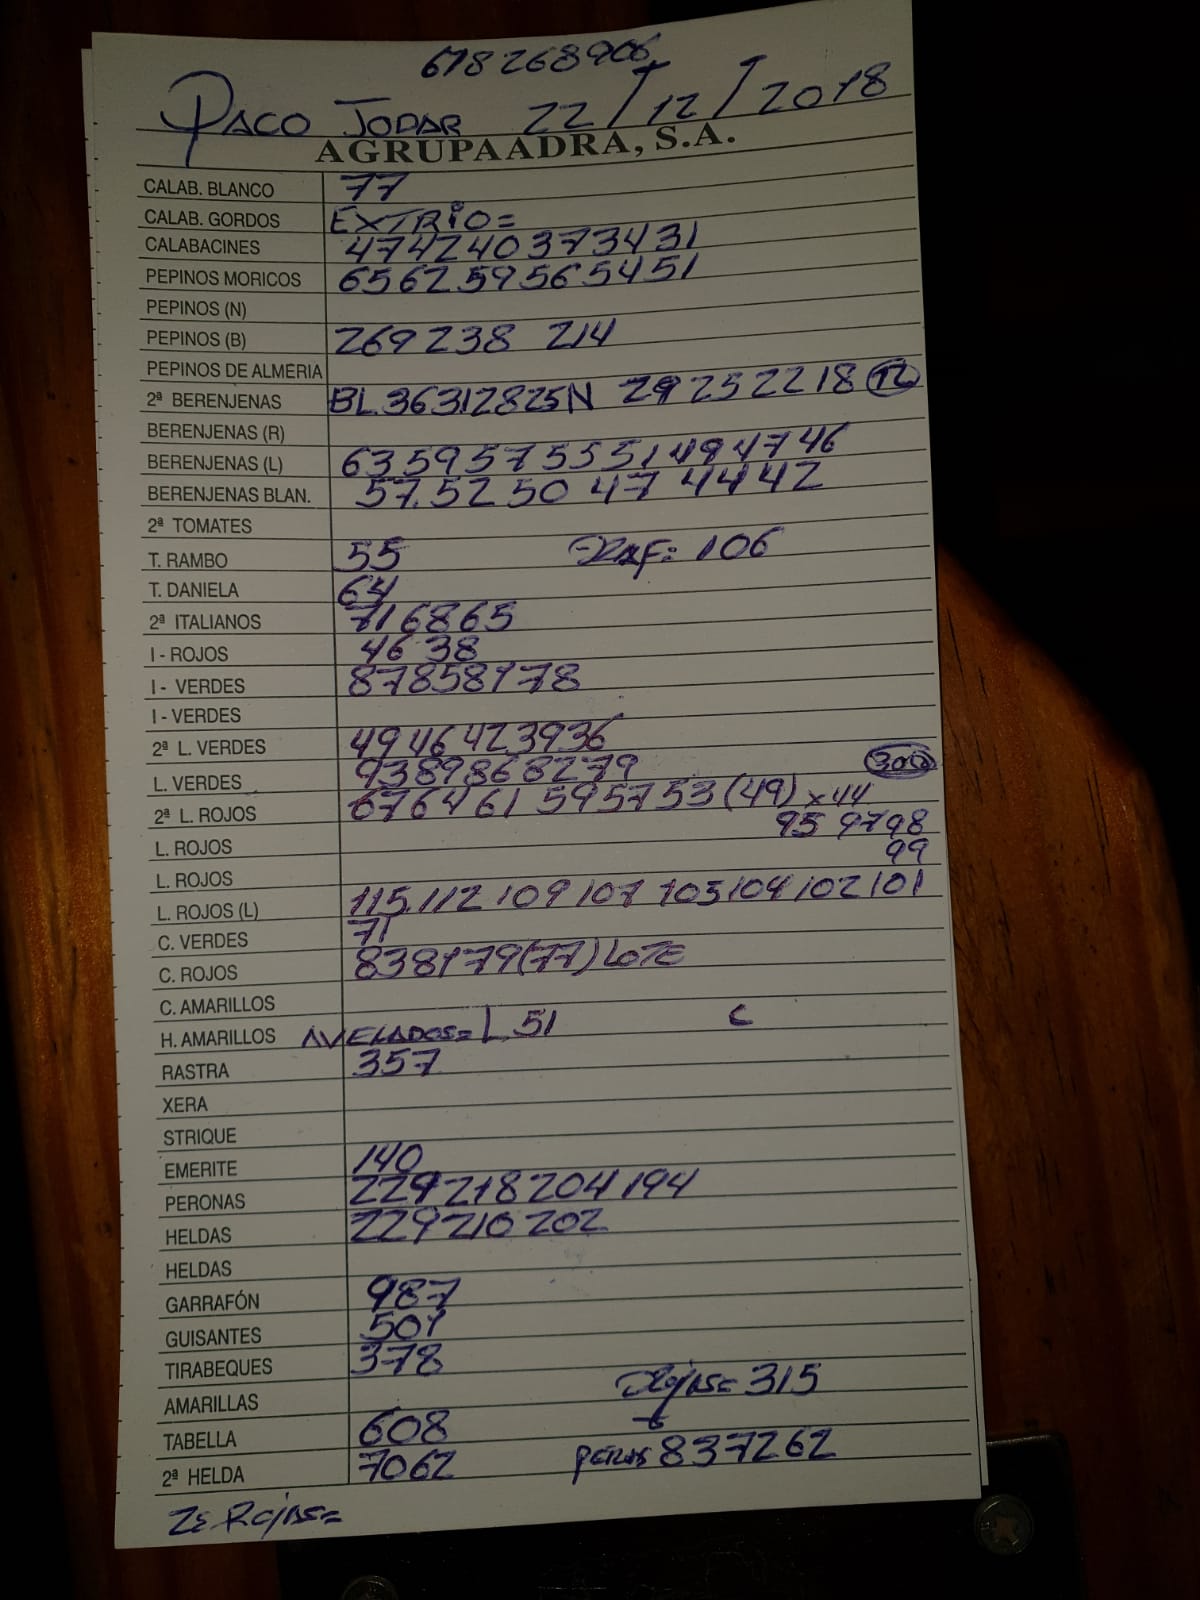 678268906
PACO JODAR 22/12/2018
AGRUPAADRA, S.A.
CALAB. BLANCO 77
CALAB. GORDOS EXTRIO=
CALABACINES 474240373431
PEPINOS MORICOS 656259565451
PEPINOS (N)
PEPINOS (B) 269238 214
PEPINOS DE ALMERIA
2ª BERENJENAS BL36312825N 29252218 (12)
BERENJENAS (R)
BERENJENAS (L) 6359575551494746
BERENJENAS BLAN. 57.5250 47 4442
2ª TOMATES
T. RAMBO 55 RAF= 106
T. DANIELA 64
2ª ITALIANOS 716865
I - ROJOS 4638
I - VERDES 87858178
I - VERDES
2ª L. VERDES 4946423936
L. VERDES 9389868279 300
2ª L. ROJOS 676461 595753 (49) x 44
L. ROJOS 95 9798
99
L. ROJOS
L. ROJOS (L) 115.112 109 107 103104 102 101
C. VERDES 71
C. ROJOS 838179(77) LOTE
C. AMARILLOS
H. AMARILLOS AVELADOS= L 51 C
RASTRA 357
XERA
STRIQUE
EMERITE 140
PERONAS 229218204194
HELDAS 229210202
HELDAS
GARRAFÓN 987
GUISANTES 501
TIRABEQUES 378
AMARILLAS Rojas= 315
TABELLA 608
2ª HELDA 7062 837262
2ª Rojas=